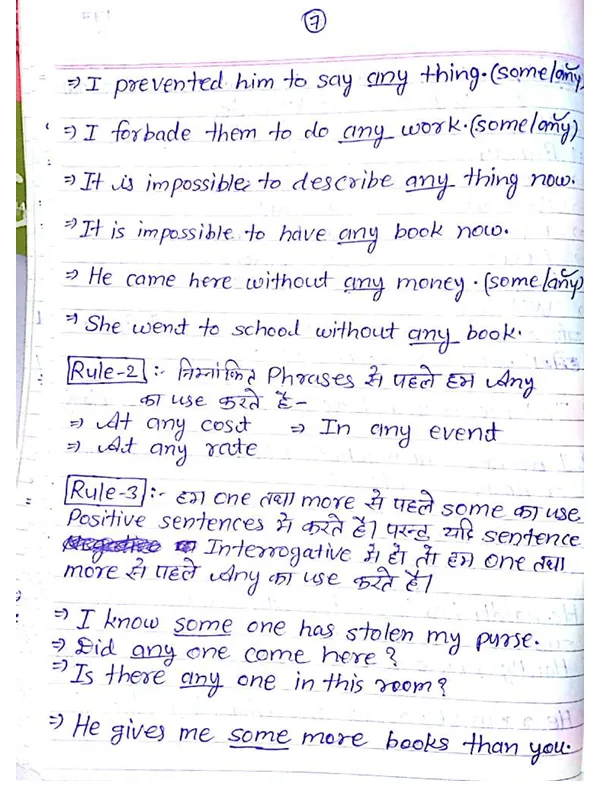 7
⇒ I prevented him to say any thing. (some/any)
⇒ I forbade them to do any work. (some/any)
⇒ It is impossible to describe any thing now.
⇒ It is impossible to have any book now.
⇒ He came here without any money. (some/any)
⇒ She went to school without any book.
Rule-2 :- निम्नांकित Phrases से पहले हम Any
का use करते है-
⇒ At any cost ⇒ In any event
⇒ At any rate
Rule-3 :- हम one तथा more से पहले some का use
Positive sentences में करते है। परन्तु यदि sentence
Interrogative में हो तो हम one तथा
more से पहले Any का use करते है।
⇒ I know some one has stolen my purse.
⇒ Did any one come here?
⇒ Is there any one in this room?
⇒ He gives me some more books than you.